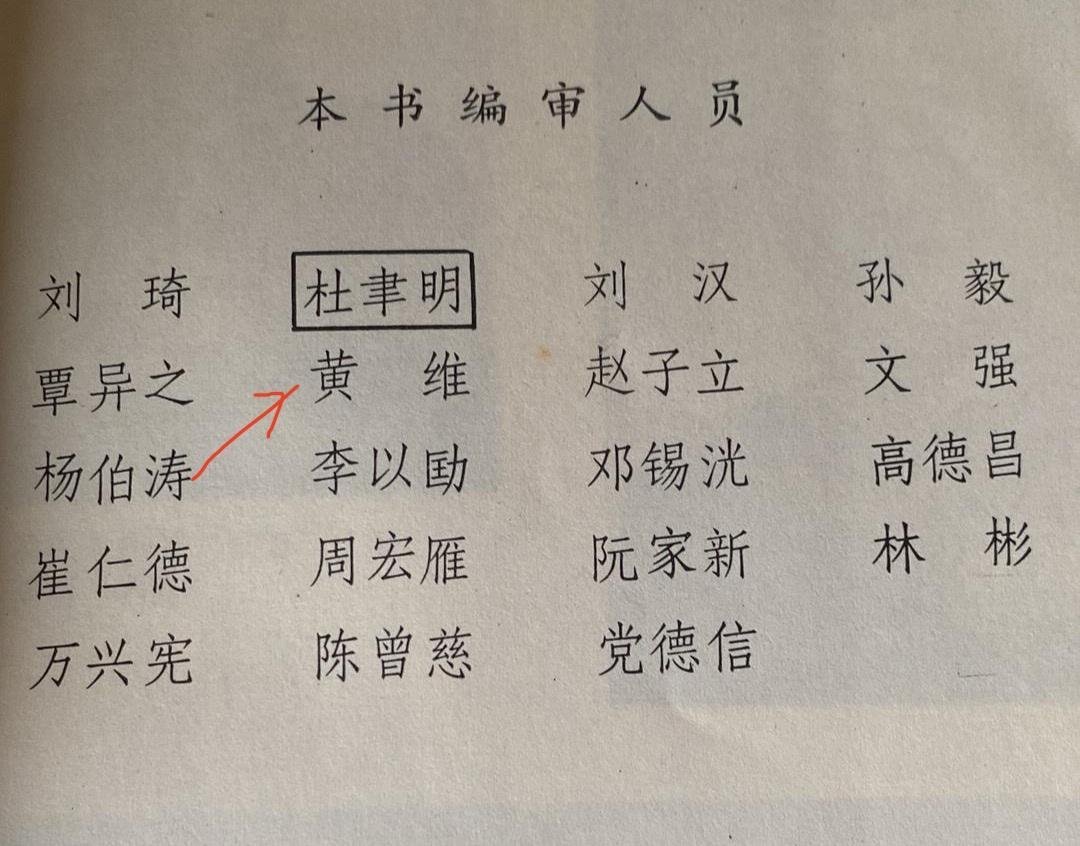 本书编审人员
刘琦 杜聿明 刘汉 孙毅
覃异之 黄维 赵子立 文强
杨伯涛 李以劻 邓锡洸 高德昌
崔仁德 周宏雁 阮家新 林彬
万兴宪 陈曾慈 党德信